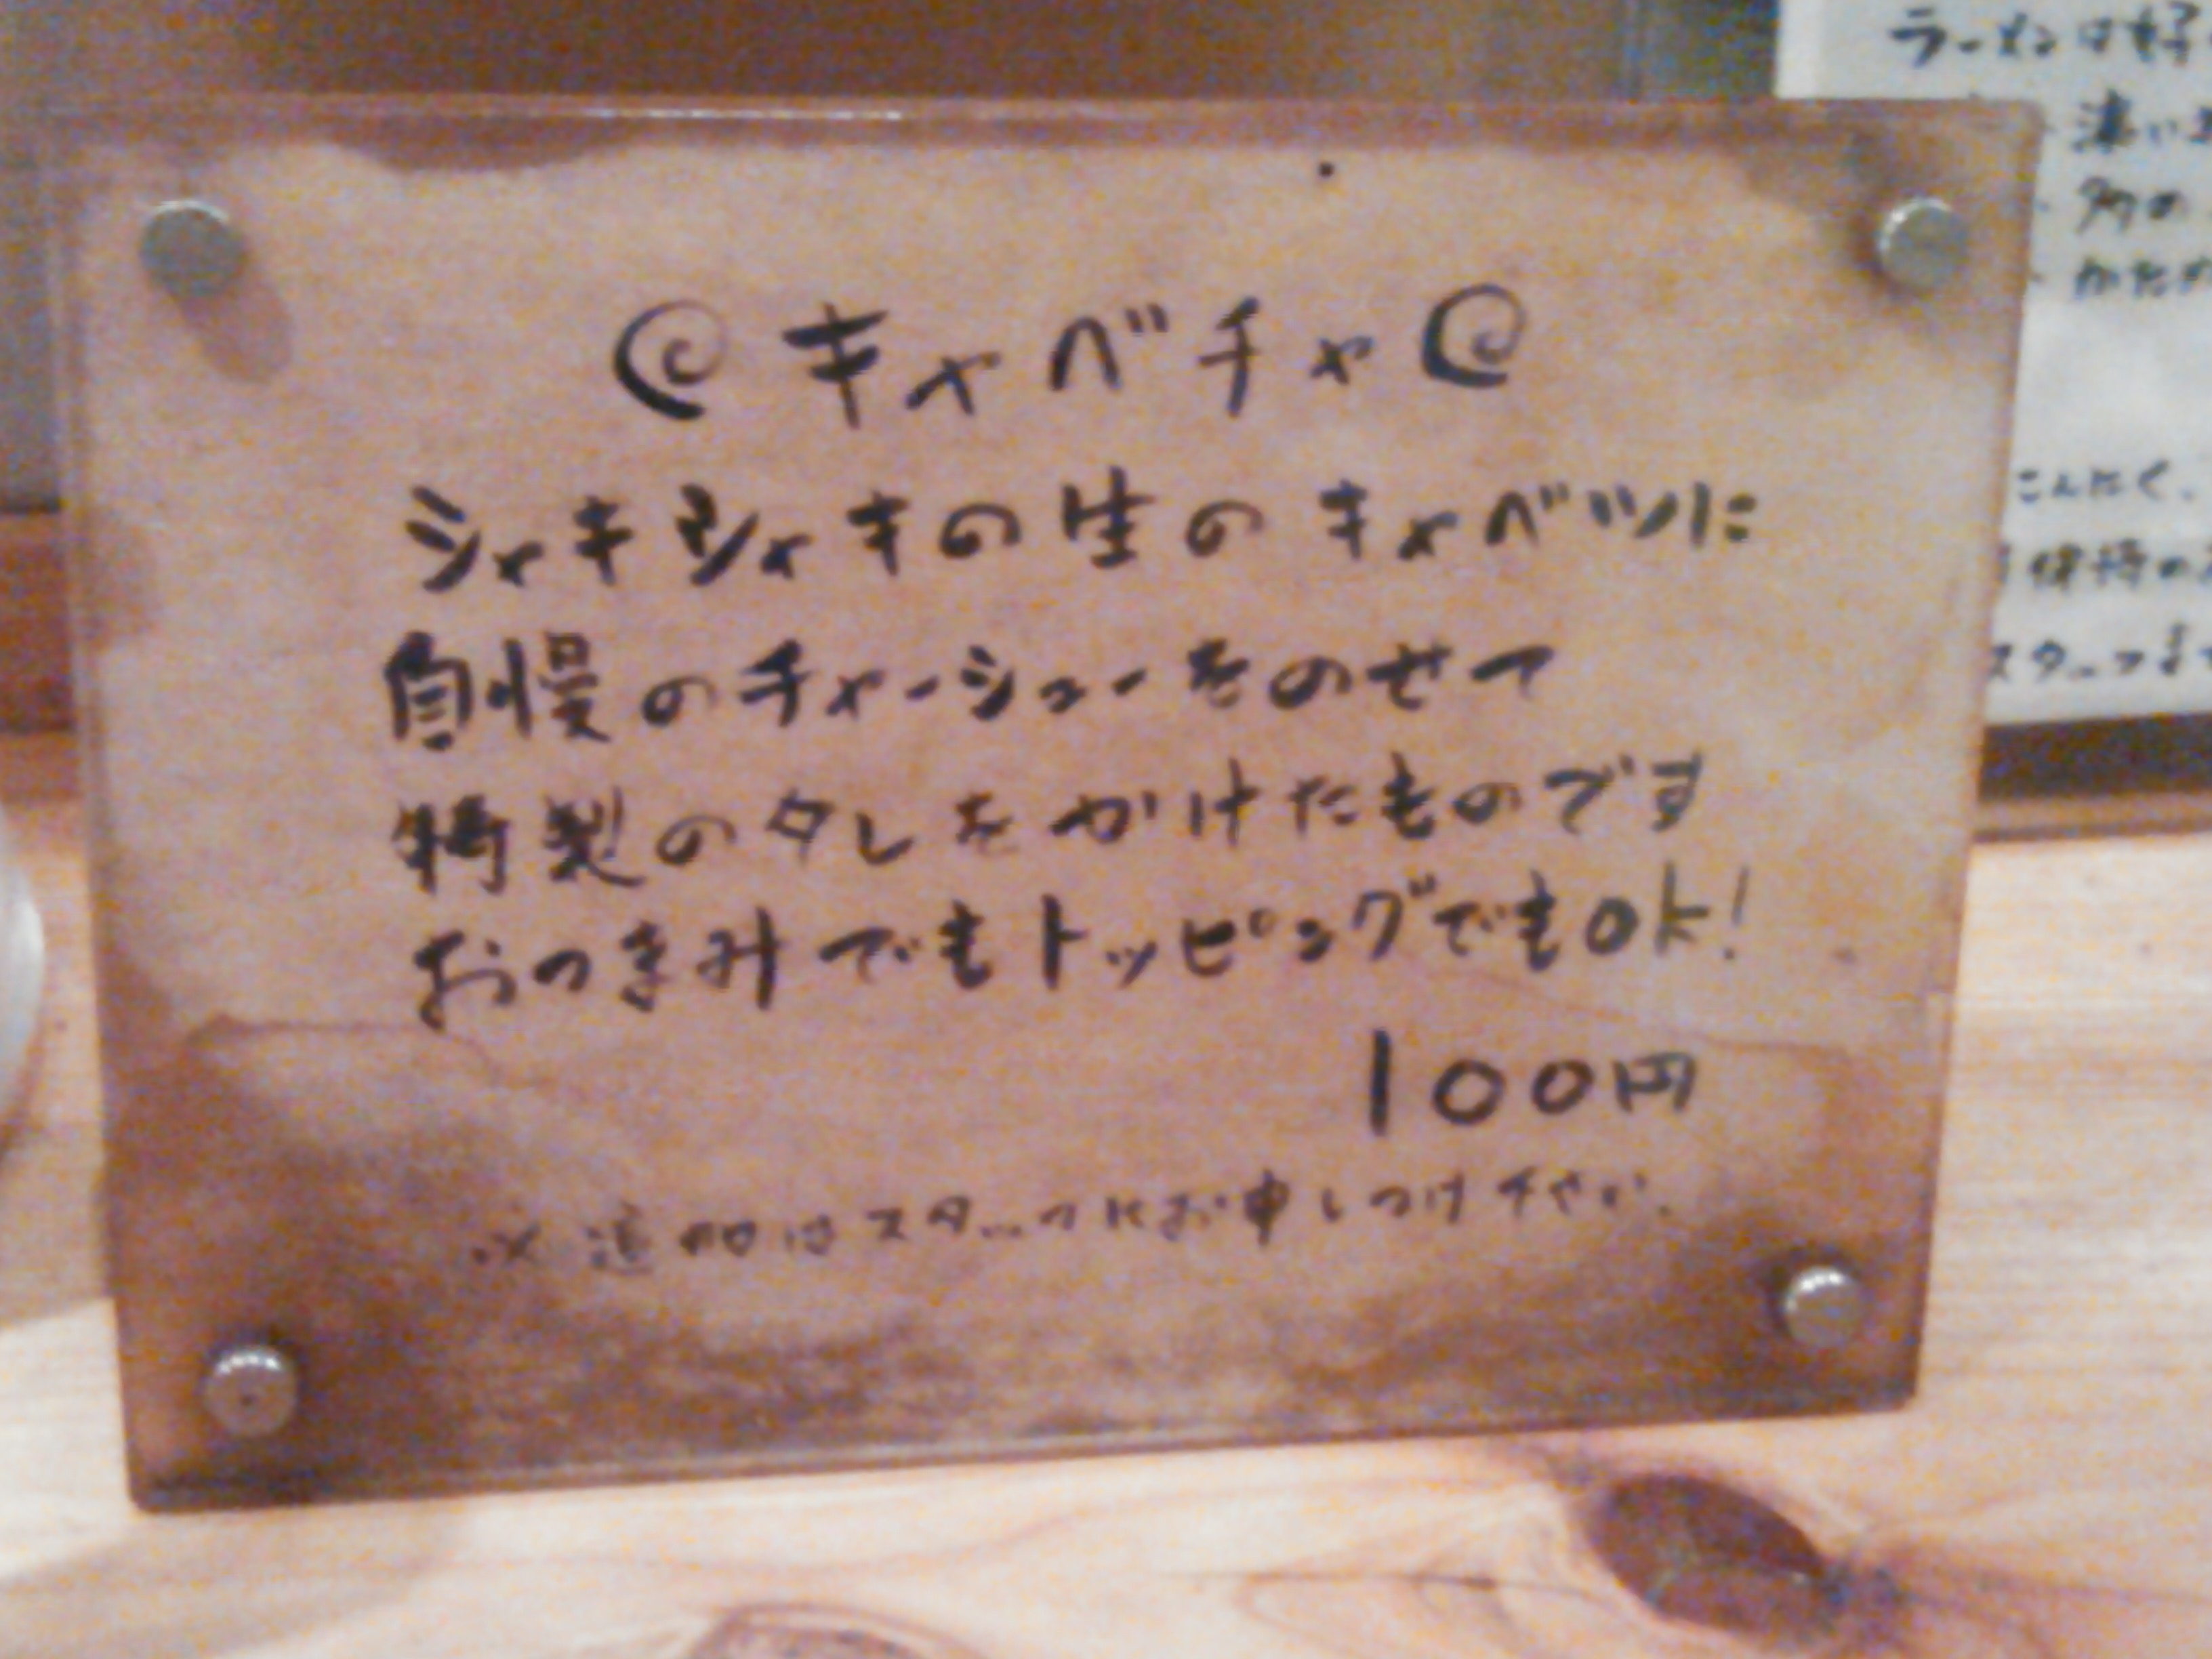 @キャベチャ@
シャキシャキの生のキャベツに
自慢のチャーシューをのせて
特製のタレをかけたものです
おつまみでもトッピングでもOK!
100円
※追加はスタッフにお申しつけ下さい.
ラーメンは好
濃い
多め
かため
にんにく、
スタッフまで